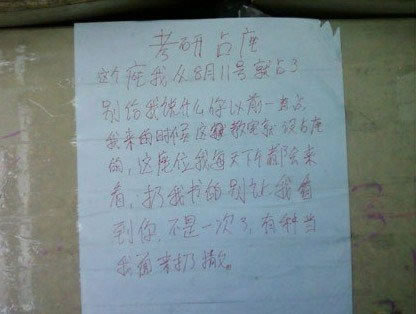 考研占座
这个座我从8月11号就占了
别给我说什么你以前一直占
我来的时候这教室就没占座
的，这座位我每天下午都会来
看，扔我书的别让我看
到你，不是一次了，有种当
我面来扔撒。